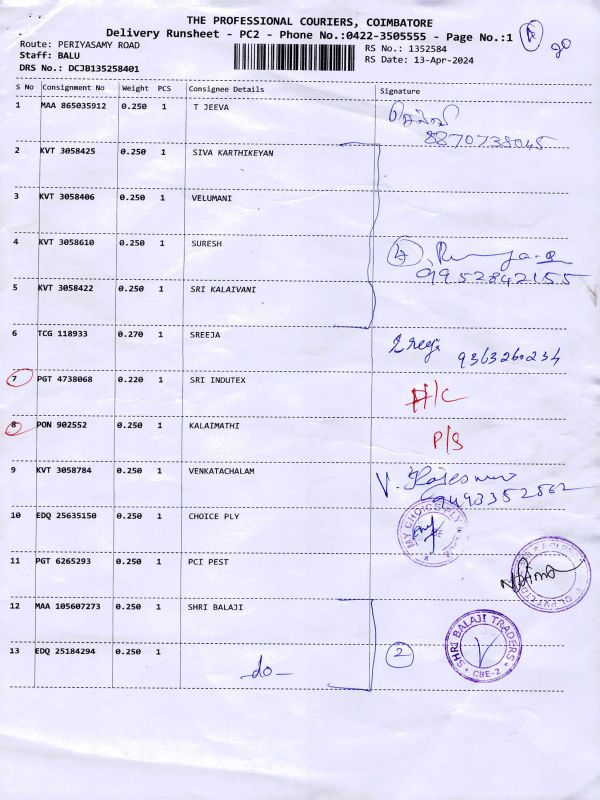 THE PROFESSIONAL COURIERS, COIMBATORE
Delivery Runsheet - PC2 - Phone No.:0422-3505555 - Page No.:1
Route: PERIYASAMY ROAD
Staff: BALU
DRS No.: DCJB135258401
RS No.: 1352584
RS Date: 13-Apr-2024
S No Consignment No Weight PCS Consignee Details Signature
1 MAA 865035912 0.250 1 T JEEVA
8870738045
2 KVT 3058425 0.250 1 SIVA KARTHIKEYAN
3 KVT 3058406 0.250 1 VELUMANI
4 KVT 3058610 0.250 1 SURESH 4
9952842155
5 KVT 3058422 0.250 1 SRI KALAIVANI
6 TCG 118933 0.270 1 SREEJA Sreeja 9363260234
7 PGT 4738068 0.220 1 SRI INDUTEX A/C
8 PON 902552 0.250 1 KALAIMATHI P/S
9 KVT 3058784 0.250 1 VENKATACHALAM V. Rajeswari
9493352862
10 EDQ 25635150 0.250 1 CHOICE PLY MY CHOICE PLY
11 PGT 6265293 0.250 1 PCI PEST
12 MAA 105607273 0.250 1 SHRI BALAJI SHRI BALAJI TRADERS
CBE-2
13 EDQ 25184294 0.250 1 -do- 2